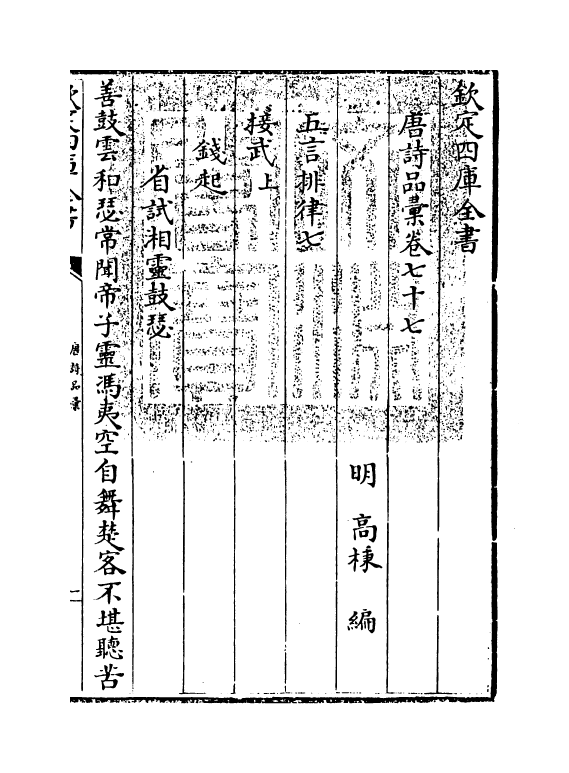 欽定四庫全書
唐詩品彙卷七十七
明 高棅 編
五言排律七
接武上
錢起
省試相靈鼓瑟
善鼓雲和瑟常聞帝子靈馮夷空自舞楚客不堪聽苦
唐詩品彙